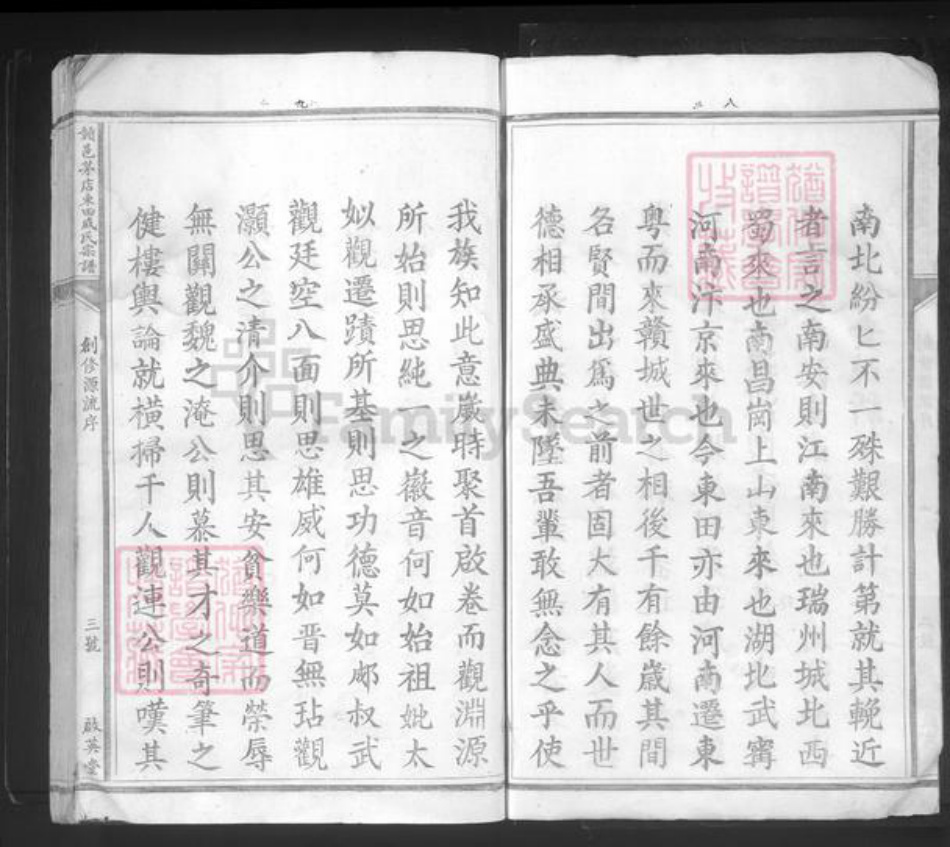 八
南北紛匕不一殊艱勝計第就其輓近
者言之南安則江南來也瑞州城北西
蜀來也南昌崗上山東來也湖北武甯
河南汴京來也今東田亦由河南遷東
粵而來贛城世之相後千有餘歲其間
各賢間出爲之前者固大有其人而世
德相承盛典未墜吾輩敢無念之乎使
九
我族知此意歲時聚首啟卷而觀淵源
所始則思純一之徽音何如始祖妣太
姒觀遷蹟所基則思功德莫如郕叔武
觀廷空八面則思雄威何如晋無玷觀
灝公之清介則思其安貧樂道而榮辱
無關觀魏之淹公則慕其才之奇筆之
健樓輿論就橫掃千人觀連公則嘆其
邑茅店東田戚氏宗譜
創修源流序
三號
啟英堂
FamilySearch